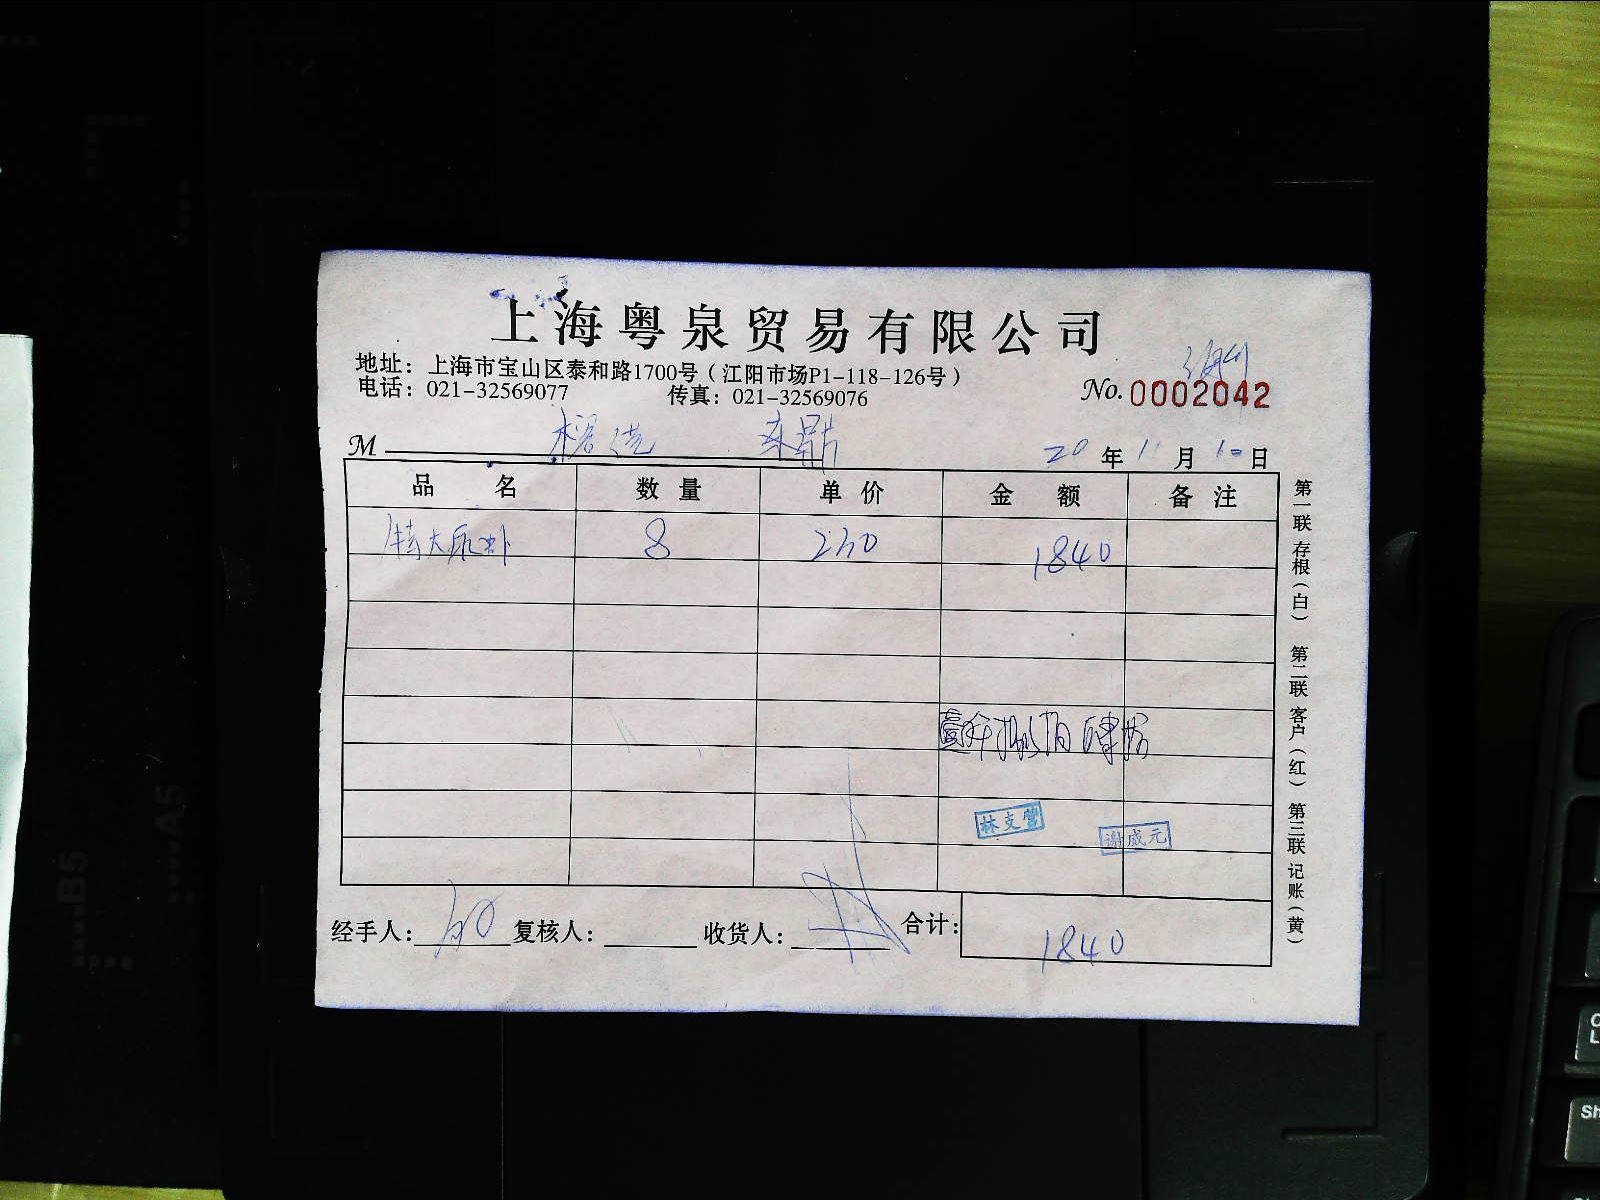 上海粤泉贸易有限公司
地址：上海市宝山区泰和路1700号（江阳市场P1-118-126号）
电话：021-32569077 传真：021-32569076
No. 0002042
M
20 年 11 月 10 日
品 名 数 量 单 价 金 额 备 注
特大尾虾 8 230 1840
壹仟捌佰肆拾
林支营
谢成元
经手人： 复核人： 收货人： 合计： 1840
第一联 存根（白） 第二联 客户（红） 第三联 记账（黄）
B5
A5